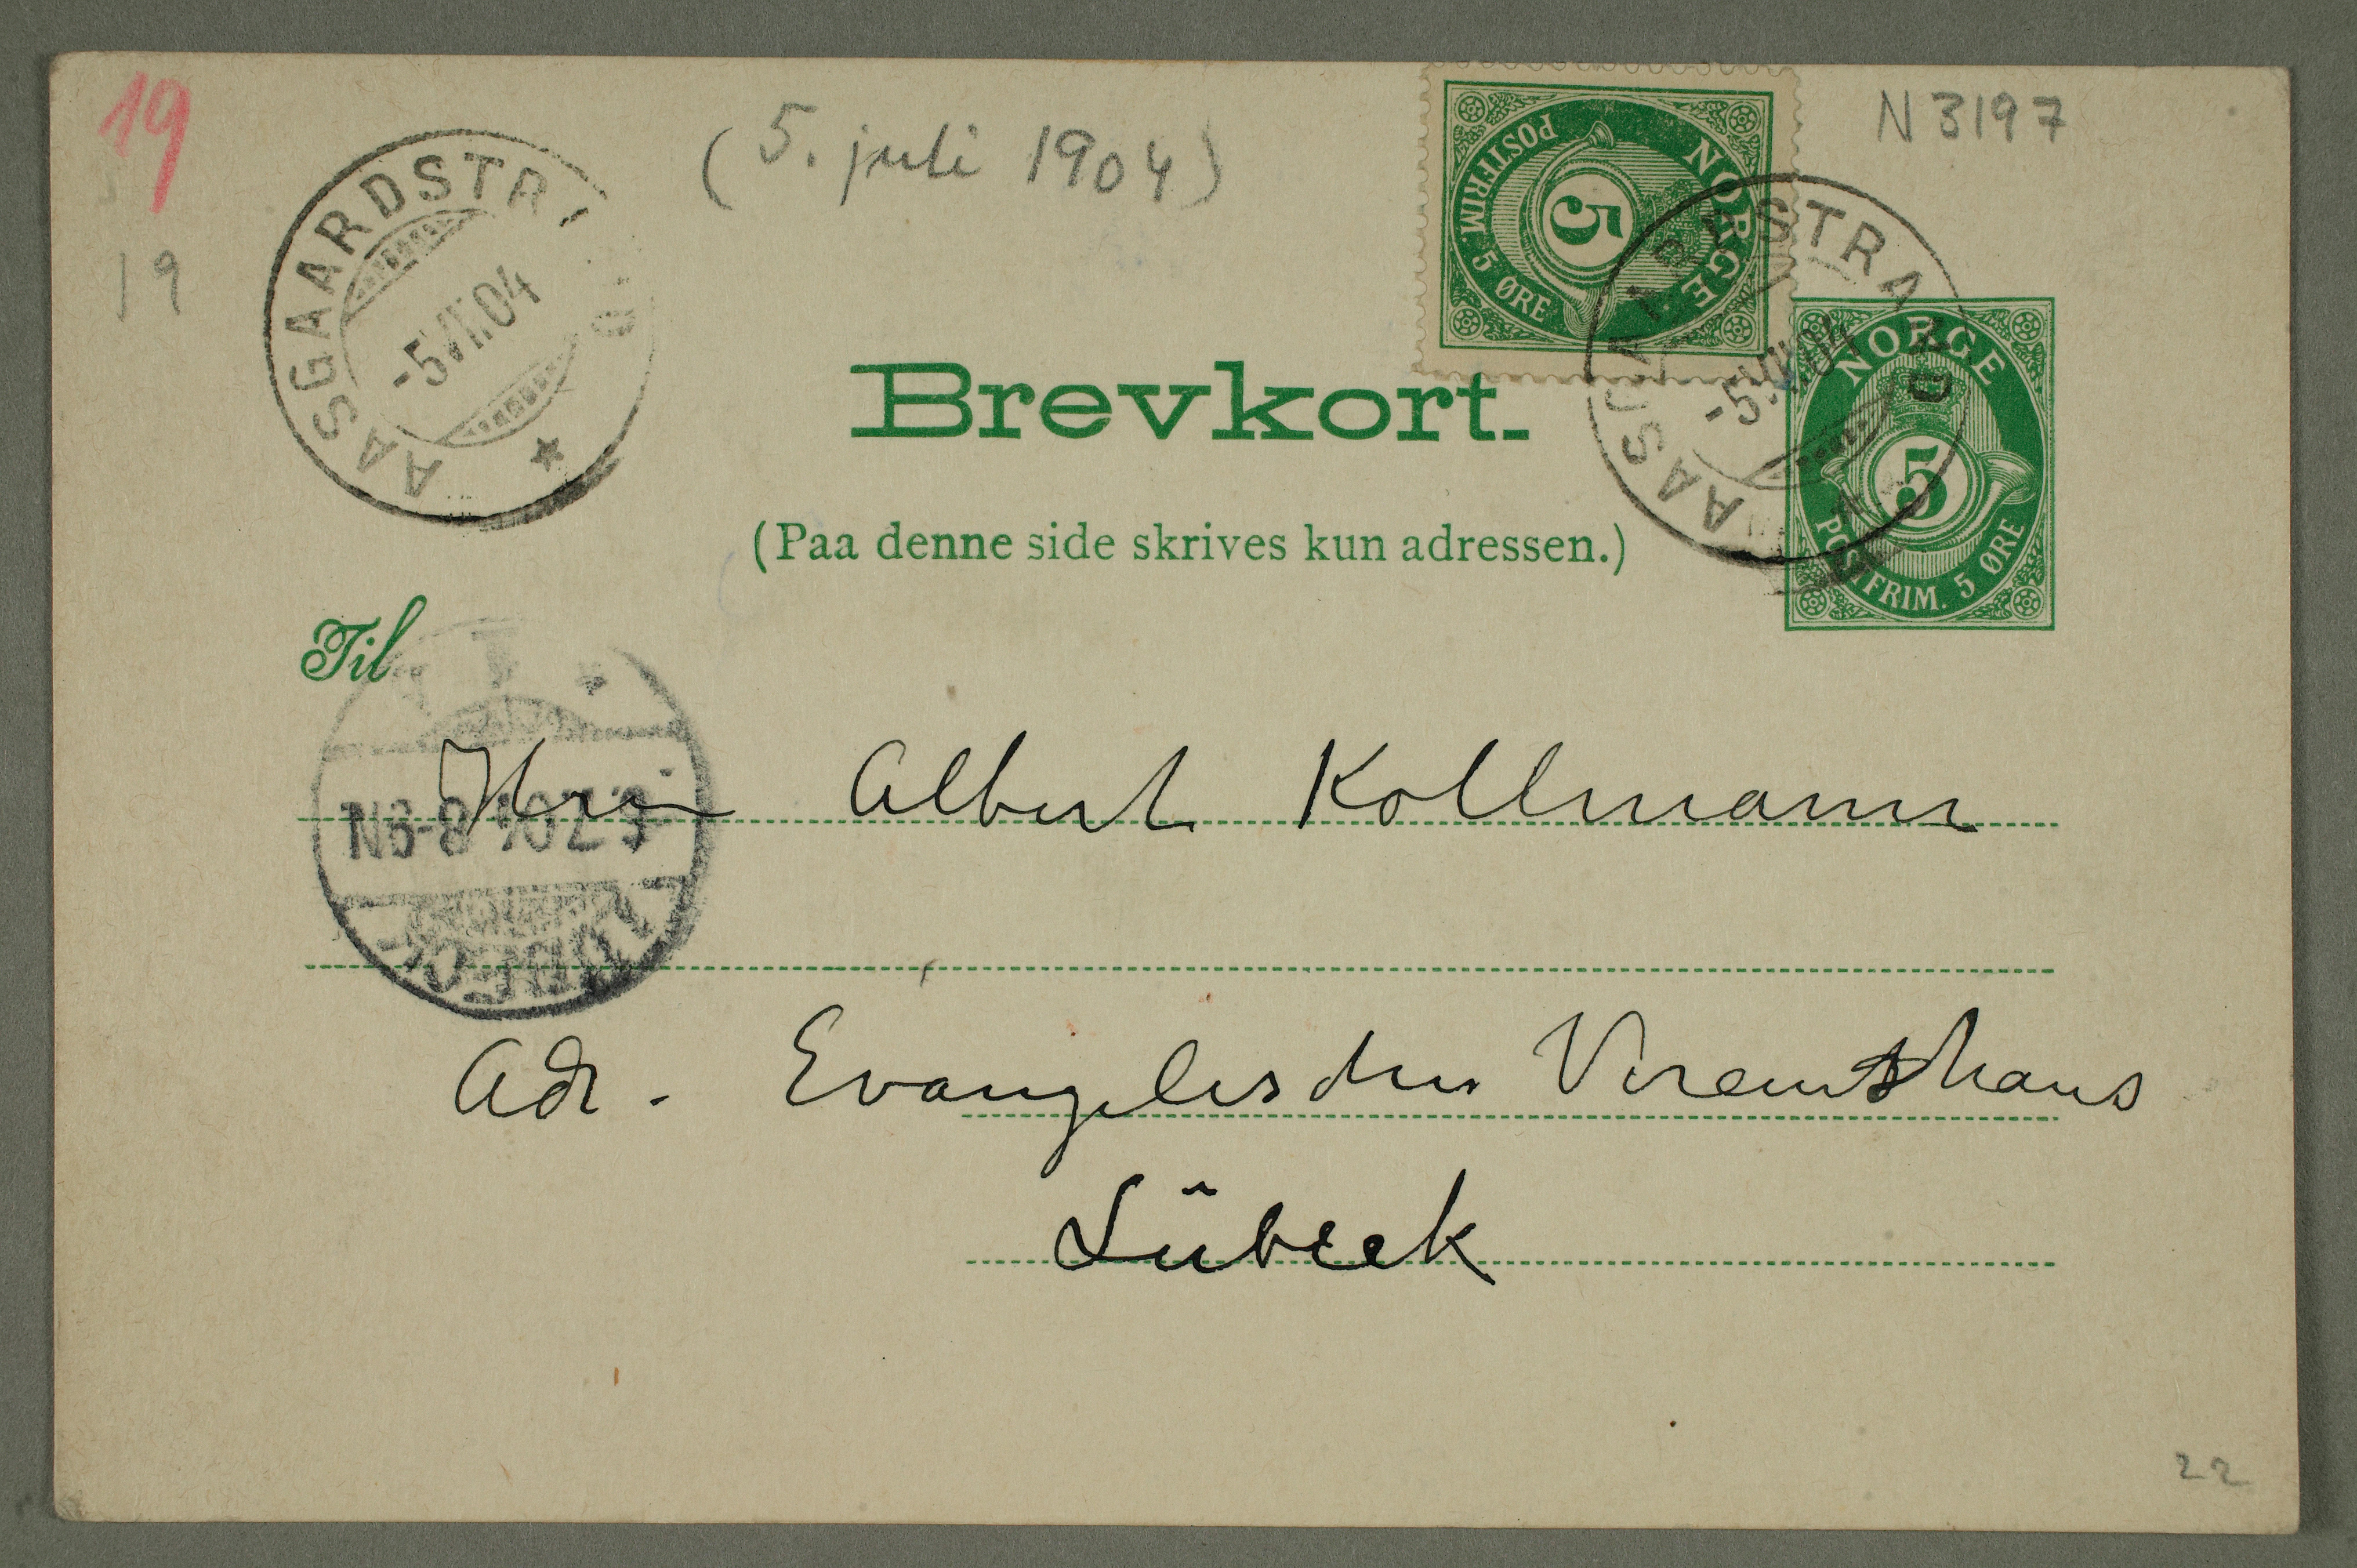 19
19
(5. juli 1904)
N 3197
AASGAARDSTRA
-5VII.04
NORGE
5
POSTFRIM. 5 ØRE
AASGAARDSTRAND
-5VII04
NORGE
5
POSTFRIM. 5 ØRE
Brevkort.
(Paa denne side skrives kun adressen.)
Til
Herrn Albert Kollmann
8-9N
LÜBECK
Adr. Evangelisches Vereinshaus
Lübeck
22